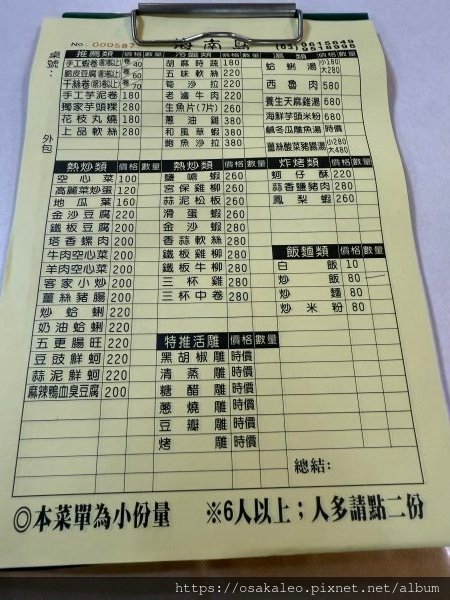 No. 000587
海南
桌號：
外包
推薦類 價格 數量
手工蝦卷 捲 40
脆皮豆腐 70
干絲卷 60
手工芋泥卷 180
獨家芋頭粿 280
花枝丸燒 180
上品軟絲 280
冷盤類 價格 數量
胡麻時蔬 180
五味軟絲 220
筍沙拉 220
老滷牛肉 220
生魚片(7片) 260
蔥油雞 380
和風草蝦 380
鮑魚沙拉 380
湯類 價格 數量
蛤蜊湯 小180 大280
西魯肉 580
養生天麻雞湯 680
海鮮芋頭米粉 680
鹹冬瓜雕魚湯 時價
薑絲酸菜豬腸湯 小280 大480
熱炒類 價格 數量
空心菜 100
高麗菜炒蛋 120
地瓜葉 160
金沙豆腐 220
鐵板豆腐 200
塔香螺肉 200
牛肉空心菜 200
羊肉空心菜 200
客家小炒 200
薑絲豬腸 200
炒蛤蜊 220
奶油蛤蜊 220
五更腸旺 220
豆豉鮮蚵 220
蒜泥鮮蚵 220
麻辣鴨血臭豆腐 200
熱炒類 價格 數量
鹽嗆蝦 260
宮保雞柳 260
蒜泥松板 260
滑蛋蝦 260
金沙蝦 280
香蒜軟絲 280
鐵板雞柳 280
鐵板牛柳 280
三杯雞 280
三杯中卷 280
炸烤類 價格 數量
蚵仔酥 220
蒜香鹽豬肉 280
鳳梨蝦 260
飯麵類 價格 數量
白飯 10
炒飯 80
炒麵 80
炒米粉 80
特推活雕 價格 數量
黑胡椒雕 時價
清蒸雕 時價
糖醋雕 時價
蔥燒雕 時價
豆瓣雕 時價
烤雕 時價
總結：
◎本菜單為小份量 ※6人以上；人多請點二份
https://osakaleo.pixnet.net/album